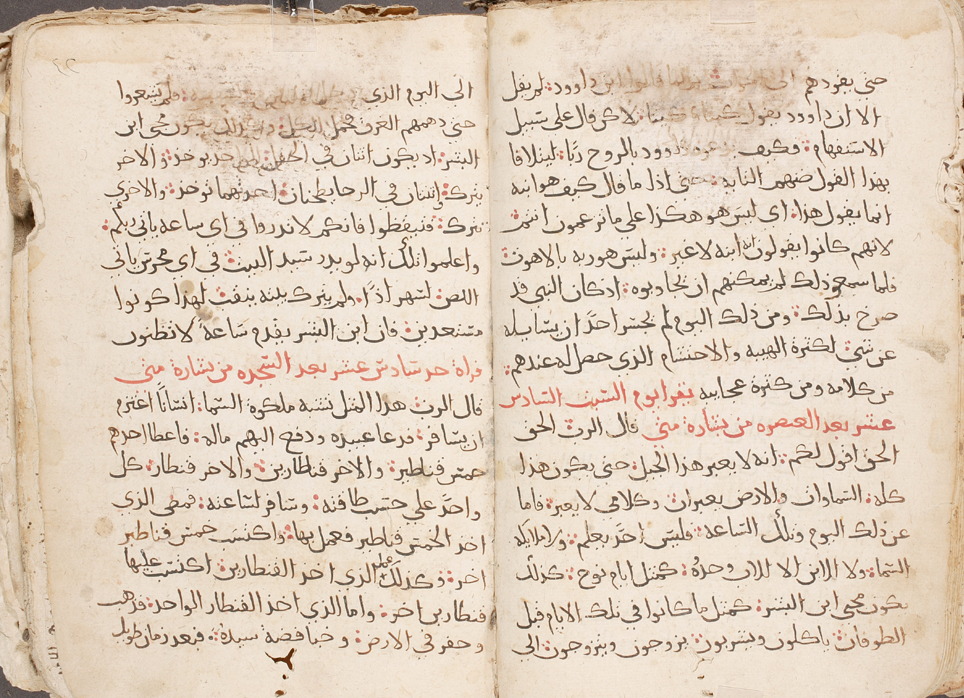 حتى يقودهم الى ابن داوود لم يقل
الا ان داوود يقول لاكن قال على سبيل
الاستفهام وكيف داوود بالروح ربا ليتلافا
بهذا القول ضنهم حتى اذا ما قال كيف هو ابنه
انما يقول هذا اى ليس هو هكذا على ما تزعمون انتم
لانهم كانوا يقولون انه ابنه لا غير وليس هو ربه بالاهوت
فلما سمعو ذلك لم يمكنهم ان يجاوبوه اذ كان النبى قد
صرح بذلك ومن ذلك اليوم لم يجسر احدا ان يسايله
عن شي لكثرة الهيبه والاحتشام الذي حصل له عندهم
من كلامه ومن كثرة عجايبه يقرا يوم السبت السادس
عشر بعد العنصره من بشارة متى قال الرب الحق
الحق اقول لكم انه لا يعبر هذا الجيل حتى يكون هذا
كله السماوات والارض يعبران وكلامي لا يعبر فاما
عن ذلك اليوم وتلك الساعة فليس احدا يعلم ولا ملايكه
السما ولا الابن الا الاب وحده كمثل ايام نوح كذلك
يكون مجي ابن البشر كمثل ما كانوا في تلك الايام قبل
الطوفان ياكلون ويشربون يزوجون ويتزوجون الي
الي اليوم الذي فلم يشعروا
حتى دهمهم الغرق فحمل الكل وكذلك يكون مجي ابن
البشر اذ يكون اثنان في الحقل احدهم يوخذ والاخر
يترك واثنتان في الرحا يطحنان احدتهما توخذ والاخري
تترك فتيقظوا فانكم لا تدروا في اى ساعه ياتي ربكم
واعلموا تلك انه لو يدر سيد البيت في اى محرس ياتي
اللص لسهر اذا ولم يترك بيته ينقب لهذا كونوا
مستعدين فان ابن البشر يقدم ساعة لا تظنون
قراة حد سادس عشر بعد السجده من بشارة متى
قال الرب هذا المثل تشبه ملكوة السما انسانا اعتزم
ان يسافر فدعا عبيده ودفع اليهم ماله فاعطا احدهم
خمس قناطير والاخر قنطارين والاخر قنطار كل
واحدا على حسب طاقته وسافر لساعته فمضى الذي
اخذ الخمس قناطير فعمل بها واكتسب خمس قناطير
اخر وكذلك عمل الذي اخذ القنطارين اكتسب عليها
قنطارين اخر واما الذي اخذ القنطار الواحد فذهب
وحفر في الارض وخبا فضة سيده وبعد زمان طويل